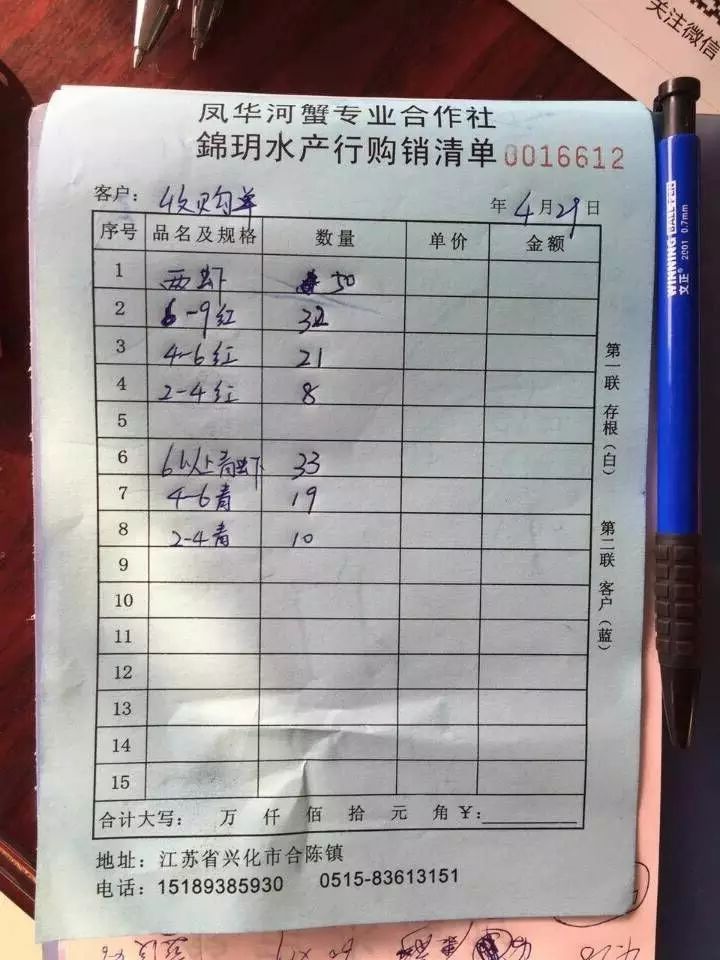 关注微信
凤华河蟹专业合作社
錦玥水产行购销清单 0016612
客户: 收购单 年 4月29日
序号 品名及规格 数量 单价 金额
1 西虾 50
2 6-9红 32
3 4-6红 21
4 2-4红 8
5
6 6以上青虾 33
7 4-6青 19
8 2-4青 10
9
10
11
12
13
14
15
合计大写: 万 仟 佰 拾 元 角 ¥:
地址: 江苏省兴化市合陈镇
电话: 15189385930 0515-83613151
第一联 存根(白) 第二联 客户(蓝)
WINNING BALL PEN
文正 2001 0.7mm